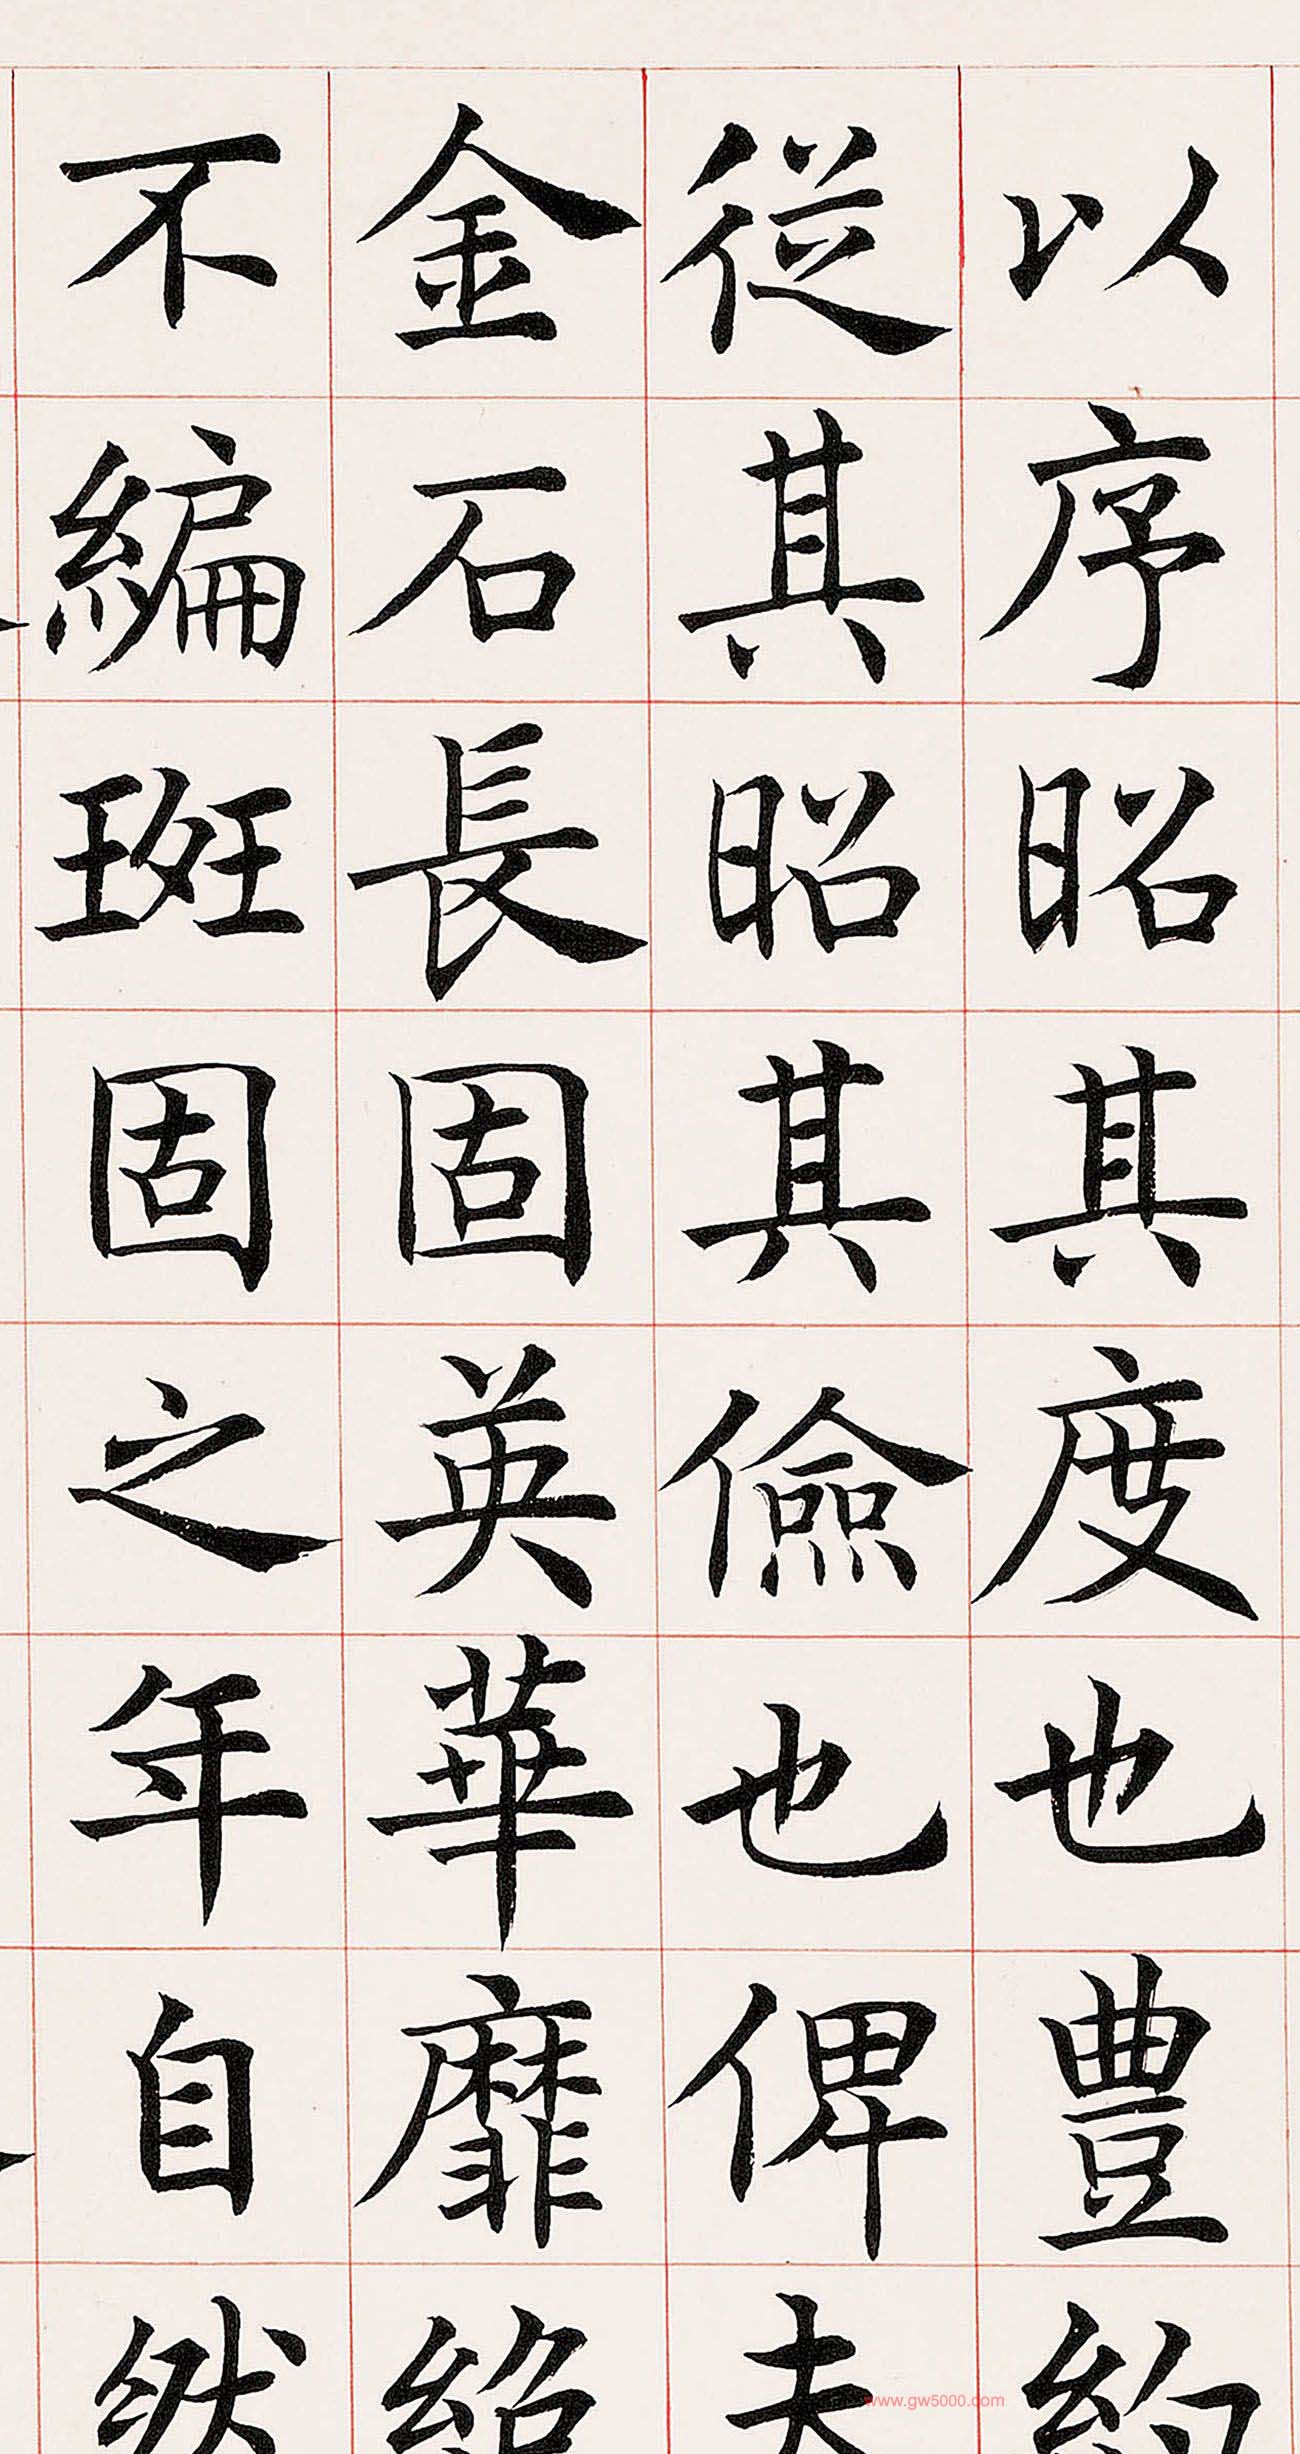 以序昭其度也豊約
從其昭其儉也俾夫
金石長固英華靡絕
不編班固之年自然
www.gw5000.com